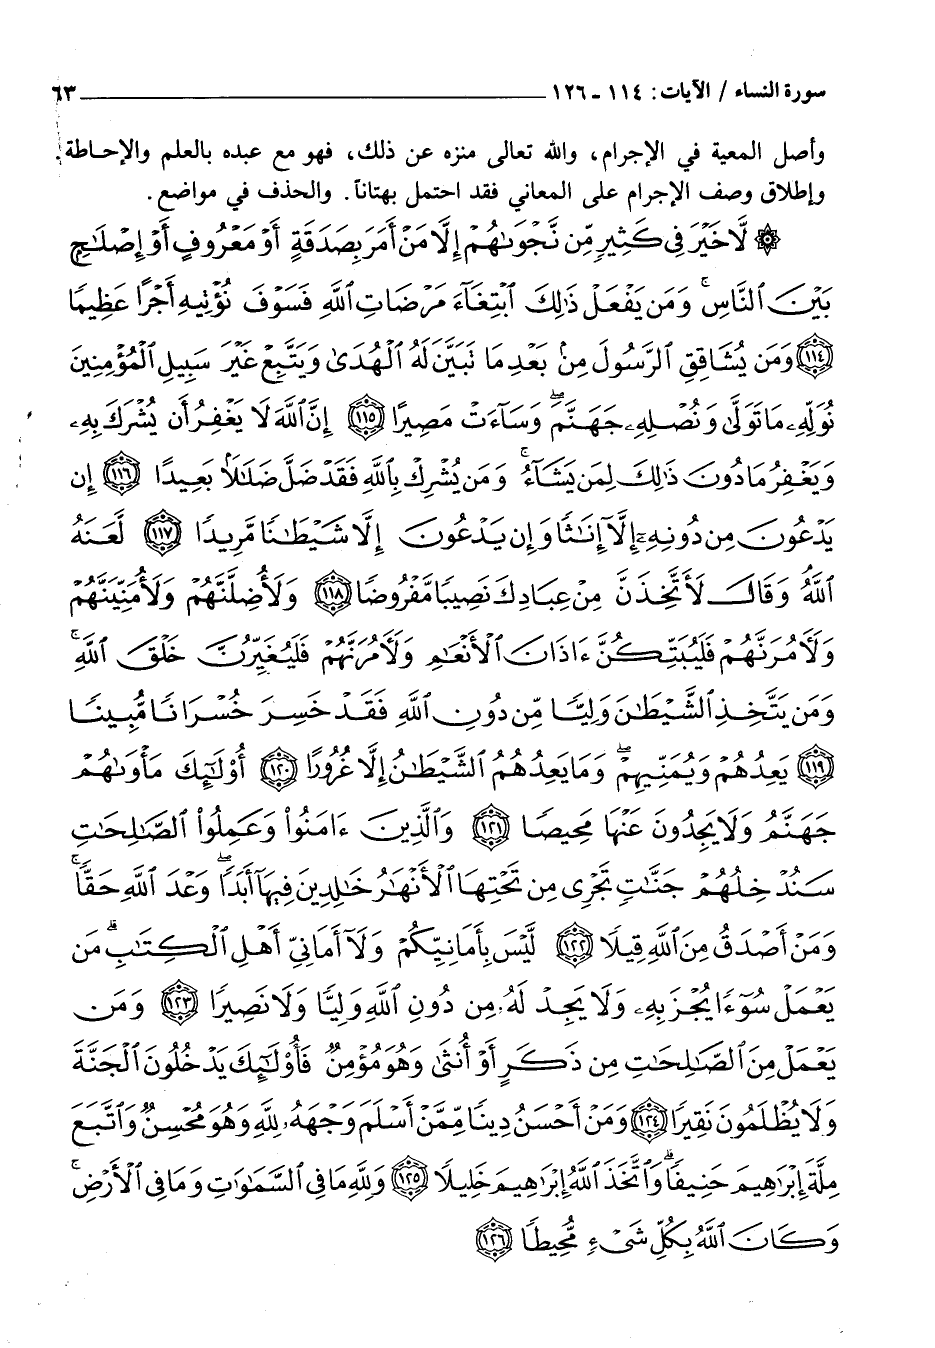 سورة النساء / الآيات: ١١٤ - ١٢٦ ٦٣
وأصل المعية في الإجرام، والله تعالى منزه عن ذلك، فهو مع عبده بالعلم والإحـاطة.
وإطلاق وصف الإجرام على المعاني فقد احتمل بهتاناً. والحذف في مواضع.
۞ لَّا خَيْرَ فِي كَثِيرٍ مِّن نَّجْوَىٰهُمْ إِلَّا مَنْ أَمَرَ بِصَدَقَةٍ أَوْ مَعْرُوفٍ أَوْ إِصْلَٰحٍ
بَيْنَ ٱلنَّاسِ ۚ وَمَن يَفْعَلْ ذَٰلِكَ ٱبْتِغَآءَ مَرْضَاتِ ٱللَّهِ فَسَوْفَ نُؤْتِيهِ أَجْرًا عَظِيمًا
﴿١١٤﴾ وَمَن يُشَاقِقِ ٱلرَّسُولَ مِنۢ بَعْدِ مَا تَبَيَّنَ لَهُ ٱلْهُدَىٰ وَيَتَّبِعْ غَيْرَ سَبِيلِ ٱلْمُؤْمِنِينَ
نُوَلِّهِۦ مَا تَوَلَّىٰ وَنُصْلِهِۦ جَهَنَّمَ ۖ وَسَآءَتْ مَصِيرًا ﴿١١٥﴾ إِنَّ ٱللَّهَ لَا يَغْفِرُ أَن يُشْرَكَ بِهِۦ
وَيَغْفِرُ مَا دُونَ ذَٰلِكَ لِمَن يَشَآءُ ۚ وَمَن يُشْرِكْ بِٱللَّهِ فَقَدْ ضَلَّ ضَلَٰلًۢا بَعِيدًا ﴿١١٦﴾ إِن
يَدْعُونَ مِن دُونِهِۦٓ إِلَّآ إِنَٰثًا وَإِن يَدْعُونَ إِلَّا شَيْطَٰنًا مَّرِيدًا ﴿١١٧﴾ لَّعَنَهُ
ٱللَّهُ ۘ وَقَالَ لَأَتَّخِذَنَّ مِنْ عِبَادِكَ نَصِيبًا مَّفْرُوضًا ﴿١١٨﴾ وَلَأُضِلَّنَّهُمْ وَلَأُمَنِّيَنَّهُمْ
وَلَءَامُرَنَّهُمْ فَلَيُبَتِّكُنَّ ءَاذَانَ ٱلْأَنْعَٰمِ وَلَءَامُرَنَّهُمْ فَلَيُغَيِّرُنَّ خَلْقَ ٱللَّهِ ۚ
وَمَن يَتَّخِذِ ٱلشَّيْطَٰنَ وَلِيًّا مِّن دُونِ ٱللَّهِ فَقَدْ خَسِرَ خُسْرَانًا مُّبِينًا
﴿١١٩﴾ يَعِدُهُمْ وَيُمَنِّيهِمْ ۖ وَمَا يَعِدُهُمُ ٱلشَّيْطَٰنُ إِلَّا غُرُورًا ﴿١٢٠﴾ أُو۟لَٰٓئِكَ مَأْوَىٰهُمْ
جَهَنَّمُ وَلَا يَجِدُونَ عَنْهَا مَحِيصًا ﴿١٢١﴾ وَٱلَّذِينَ ءَامَنُوا۟ وَعَمِلُوا۟ ٱلصَّٰلِحَٰتِ
سَنُدْخِلُهُمْ جَنَّٰتٍ تَجْرِى مِن تَحْتِهَا ٱلْأَنْهَٰرُ خَٰلِدِينَ فِيهَآ أَبَدًا ۖ وَعْدَ ٱللَّهِ حَقًّا ۚ
وَمَنْ أَصْدَقُ مِنَ ٱللَّهِ قِيلًا ﴿١٢٢﴾ لَّيْسَ بِأَمَانِيِّكُمْ وَلَآ أَمَانِىِّ أَهْلِ ٱلْكِتَٰبِ ۗ مَن
يَعْمَلْ سُوٓءًا يُجْزَ بِهِۦ وَلَا يَجِدْ لَهُۥ مِن دُونِ ٱللَّهِ وَلِيًّا وَلَا نَصِيرًا ﴿١٢٣﴾ وَمَن
يَعْمَلْ مِنَ ٱلصَّٰلِحَٰتِ مِن ذَكَرٍ أَوْ أُنثَىٰ وَهُوَ مُؤْمِنٌ فَأُو۟لَٰٓئِكَ يَدْخُلُونَ ٱلْجَنَّةَ
وَلَا يُظْلَمُونَ نَقِيرًا ﴿١٢٤﴾ وَمَنْ أَحْسَنُ دِينًا مِّمَّنْ أَسْلَمَ وَجْهَهُۥ لِلَّهِ وَهُوَ مُحْسِنٌ وَٱتَّبَعَ
مِلَّةَ إِبْرَٰهِيمَ حَنِيفًا ۗ وَٱتَّخَذَ ٱللَّهُ إِبْرَٰهِيمَ خَلِيلًا ﴿١٢٥﴾ وَلِلَّهِ مَا فِى ٱلسَّمَٰوَٰتِ وَمَا فِى ٱلْأَرْضِ ۚ
وَكَانَ ٱللَّهُ بِكُلِّ شَىْءٍ مُّحِيطًا ﴿١٢٦﴾